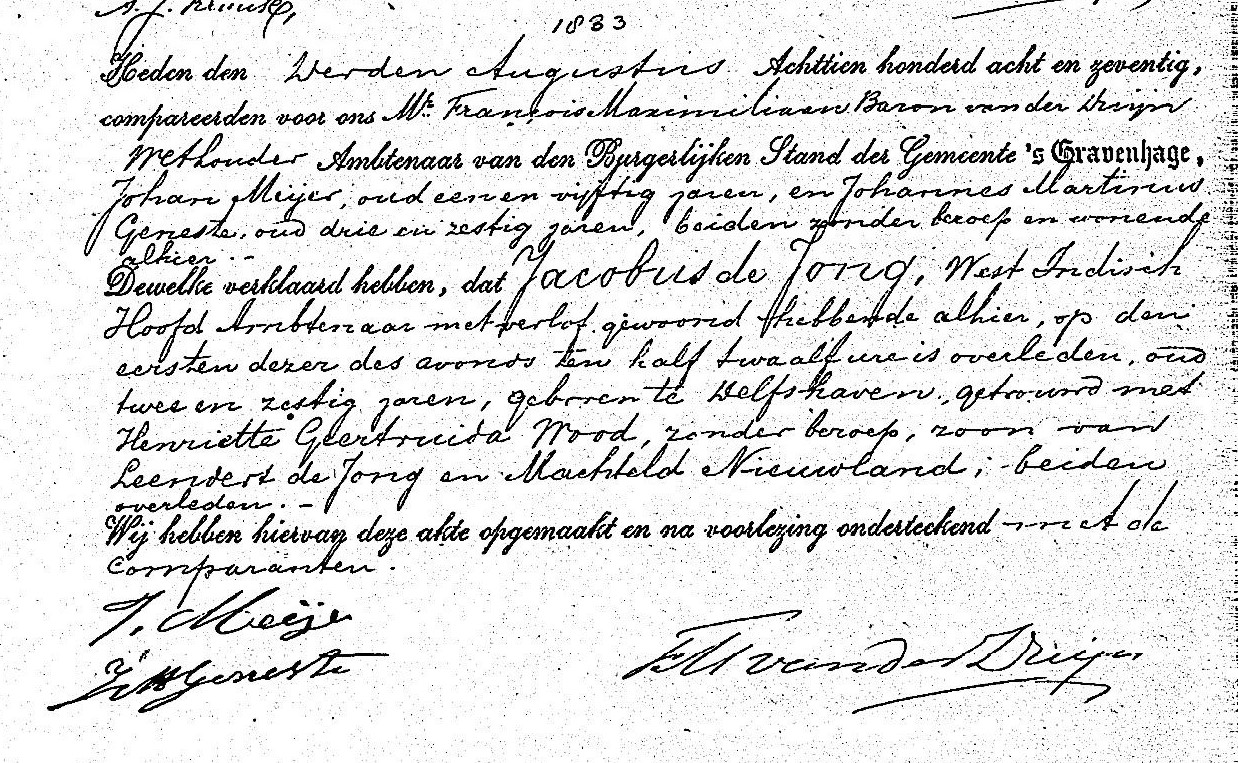 A. J. Kruisk,
1833
Heden den Derden Augustus Achttien honderd acht en zeventig,
compareerden voor ons Mr. François Maximiliaan Baron van der Duijn
Wethouder Ambtenaar van den Burgerlijken Stand der Gemeente 's Gravenhage,
Johan Meijer, oud een en vijftig jaren, en Johannes Martinus
Geneste, oud drie en zestig jaren, beiden zonder beroep en wonende
alhier. -
Dewelke verklaard hebben, dat Jacobus de Jong, West Indisch
Hoofd Ambtenaar met verlof, gewoond hebbende alhier, op den
eersten dezer des avonds ten half twaalf ure is overleden, oud
twee en zestig jaren, geboren te Delfshaven, getrouwd met
Henriette Geertruida Wood, zonder beroep, zoon van
Leendert de Jong en Machteld Nieuwland; beiden
overleden. -
Wij hebben hiervan deze akte opgemaakt en na voorlezing onderteekend met de
comparanten.
J. Meije
JM Geneste
FM van der Duijn